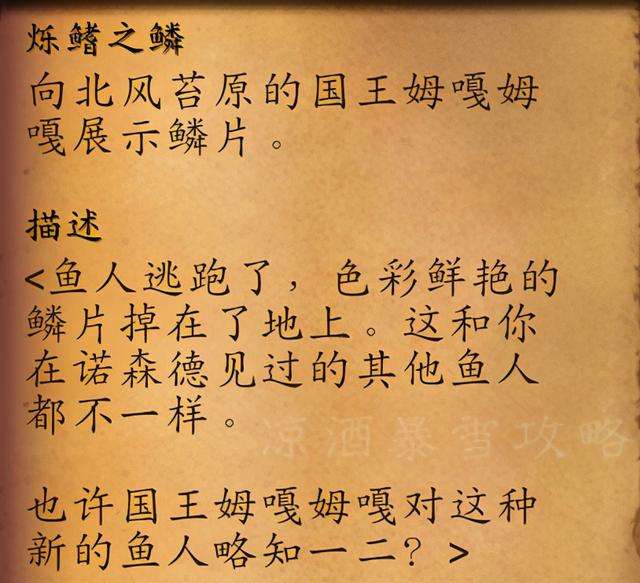 烁鳍之鳞
向北风苔原的国王姆嘎姆
嘎展示鳞片。
描述
<鱼人逃跑了，色彩鲜艳的
鳞片掉在了地上。这和你
在诺森德见过的其他鱼人
都不一样。
凉酒暴雪攻略
也许国王姆嘎姆嘎对这种
新的鱼人略知一二？>